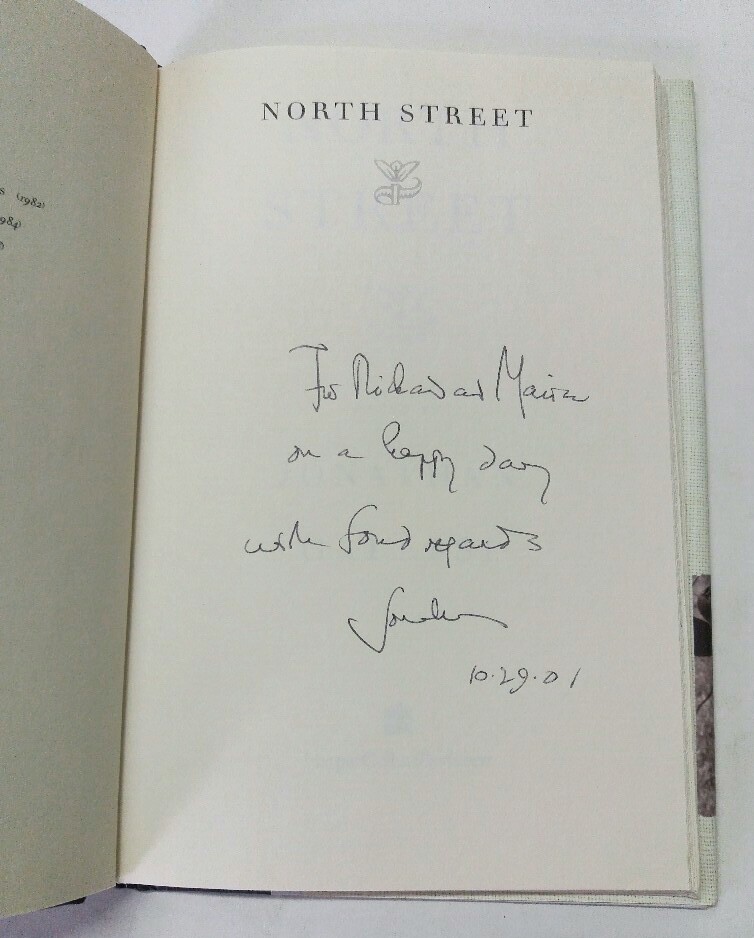 s (1982)
984)
)
NORTH STREET
For Richard and Maira
on a happy day
with fond regards
Jonathan
10.29.01